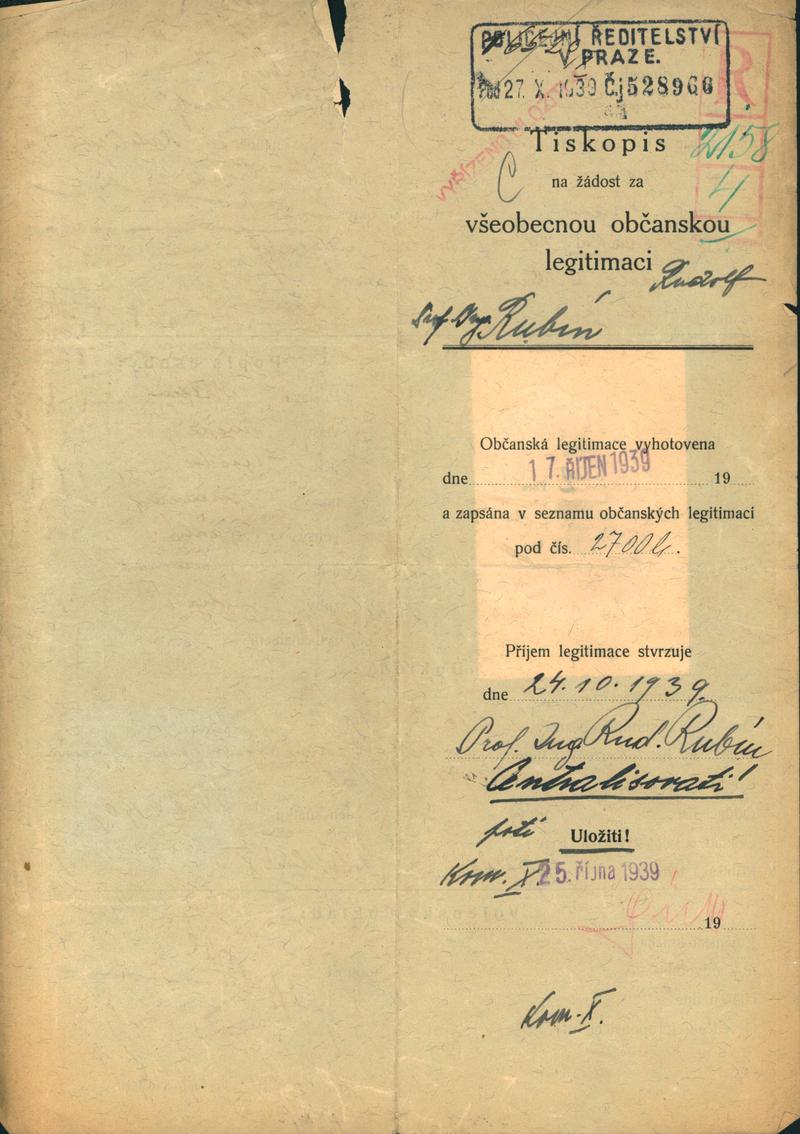 POLICEJNÍ ŘEDITELSTVÍ
V PRAZE.
27. X. 1939 Čj 528966
VYŘÍZENO
R
Tiskopis
2158
4
na žádost za
všeobecnou občanskou
legitimaci
Rudolf
Prof. Ing. Rubín
Občanská legitimace vyhotovena
dne 17. ŘÍJEN 1939 19
a zapsána v seznamu občanských legitimací
pod čís.
Příjem legitimace stvrzuje
dne 24. 10. 1939.
Prof. Ing. Rud. Rubín
Centralisovati!
poté Uložiti!
Kom. X. 25. října 1939
19
Kom. X.